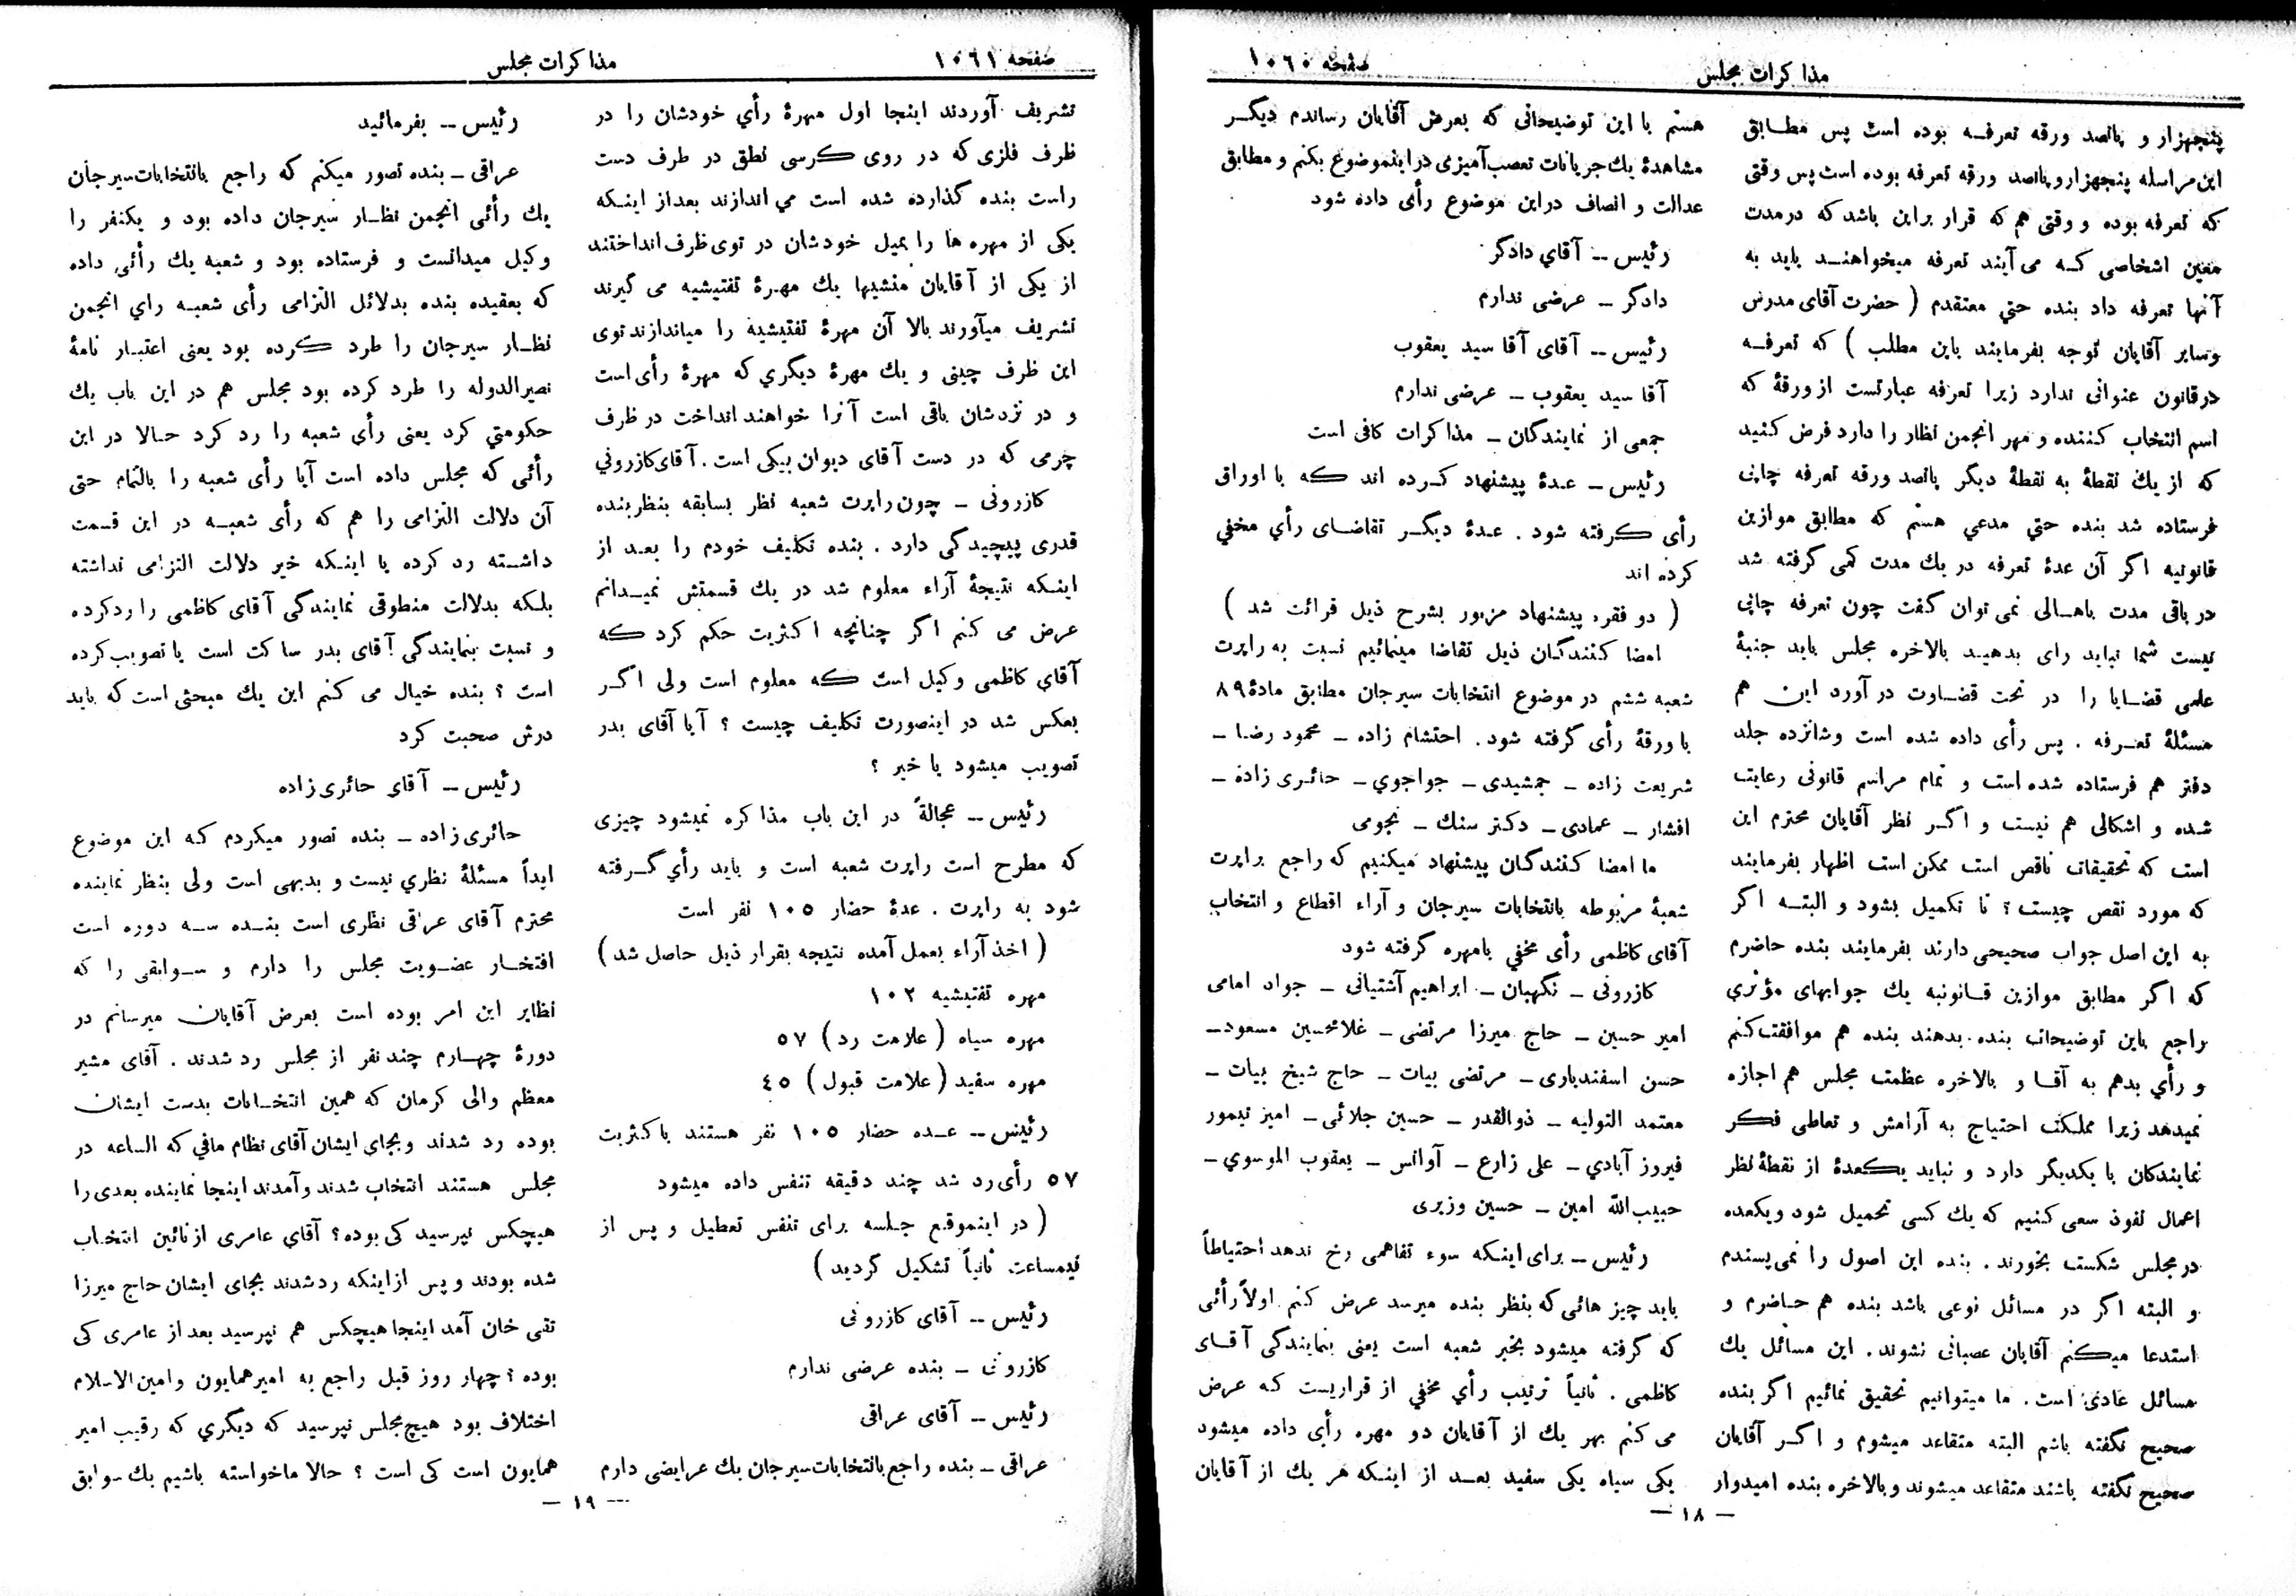 صفحه ۱۰۶۰
مذاکرات مجلس
پنجهزار و پانصد ورقه تعرفه بوده است پس مطابق
این مراسله پنجهزار و پانصد ورقه تعرفه بوده است پس وقتی
که تعرفه بوده و وقتی هم که قرار براین باشد که درمدت
معین اشخاصی که می آیند تعرفه میخواهند باید به
آنها تعرفه داد بنده حتی معتقدم ( حضرت آقای مدرس
وسایر آقایان توجه بفرمایند باین مطلب ) که تعرفه
درقانون عنوانی ندارد زیرا تعرفه عبارتست از ورقهٔ که
اسم انتخاب کننده و مهر انجمن نظار را دارد فرض کنید
که از یك نقطهٔ به نقطهٔ دیگر پانصد ورقه تعرفه چاپی
فرستاده شد بنده حتی مدعی هستم که مطابق موازین
قانونیه اگر آن عدهٔ تعرفه در یك مدت کمی گرفته شد
در باقی مدت باهالی نمی توان گفت چون تعرفه چاپی
نیست شما نباید رای بدهید بالاخره مجلس باید جنبهٔ
علمی قضایا را در تحت قضاوت در آورد این هم
مسئلهٔ تعرفه . پس رأی داده شده است وشانزده جلد
دفتر هم فرستاده شده است و تمام مراسم قانونی رعایت
شده و اشکالی هم نیست و اگر نظر آقایان محترم این
است که تحقیقات ناقص است ممکن است اظهار بفرمایند
که مورد نقص چیست ؟ تا تکمیل بشود و البته اگر
به این اصل جواب صحیحی دارند بفرمایند بنده حاضرم
که اگر مطابق موازین قانونیه یك جوابهای مؤثری
راجع باین توضیحات بنده بدهند بنده هم موافقت کنم
و رأی بدهم به آقا و بالاخره عظمت مجلس هم اجازه
نمیدهد زیرا مملکت احتیاج به آرامش و تعاطی فکر
نمایندگان با یکدیگر دارد و نباید یکعدهٔ از نقطهٔ نظر
اعمال نفوذ سعی کنیم که یك کسی تحمیل شود ویکعده
درمجلس شکست بخورند . بنده این اصول را نمی پسندم
و البته اگر در مسائل نوعی باشد بنده هم حاضرم و
استدعا میکنم آقایان عصبانی نشوند . این مسائل یك
مسائل عادی است . ما میتوانیم تحقیق نمائیم اگر بنده
صحیح نگفته باشم البته متقاعد میشوم و اگر آقایان
صحیح نگفته باشند متقاعد میشوند وبالاخره بنده امیدوار
هستم با این توضیحاتی که بعرض آقایان رساندم دیگر
مشاهدهٔ یك جریانات تعصب آمیزی در اینموضوع بکنم و مطابق
عدالت و انصاف دراین موضوع رأی داده شود
رئیس -- آقای دادگر
دادگر - عرضی ندارم
رئیس -- آقای آقا سید یعقوب
آقا سید یعقوب - عرضی ندارم
جمعی از نمایندگان - مذاکرات کافی است
رئیس - عدهٔ پیشنهاد کرده اند که با اوراق
رأی گرفته شود . عدهٔ دیگر تقاضای رأی مخفی
کرده اند
( دو فقره پیشنهاد مزبور بشرح ذیل قرائت شد )
امضا کنندگان ذیل تقاضا مینمائیم نسبت به راپرت
شعبه ششم در موضوع انتخابات سیرجان مطابق مادهٔ ۸۹
با ورقهٔ رأی گرفته شود . احتشام زاده - محمود رضا -
شریعت زاده - جمشیدی - جواجوی - حائری زاده -
افشار - عمادی - دکتر سنك - نجومی
ما امضا کنندگان پیشنهاد میکنیم که راجع براپرت
شعبهٔ مربوطه بانتخابات سیرجان و آراء اقطاع و انتخاب
آقای کاظمی رأی مخفی بامهره گرفته شود
کازرونی - نگهبان - ابراهیم آشتیانی - جواد امامی
امیر حسین - حاج میرزا مرتضی - غلامحسین مسعود -
حسن اسفندیاری - مرتضی بیات - حاج شیخ بیات -
معتمد التولیه - ذوالقدر - حسین جلائی - امیر تیمور
فیروز آبادی - علی زارع - آوانس - یعقوب الموسوی -
حبیب‌الله امین - حسین وزیری
رئیس - برای اینکه سوء تفاهمی رخ ندهد احتیاطاً
باید چیز هائی که بنظر بنده میرسد عرض کنم اولاً رأئی
که گرفته میشود بخبر شعبه است یعنی بنمایندگی آقای
کاظمی . ثانیاً ترتیب رأی مخفی از قراریست که عرض
می کنم بهر یك از آقایان دو مهره رأی داده میشود
یکی سیاه یکی سفید بعد از اینکه هر یك از آقایان
— ۱۸ —
صفحه ۱۰۶۱
مذاکرات مجلس
تشریف آوردند اینجا اول مهرهٔ رأی خودشان را در
ظرف فلزی که در روی کرسی نطق در طرف دست
راست بنده گذارده شده است می اندازند بعداز اینکه
یکی از مهره ها را بمیل خودشان در توی ظرف انداختند
از یکی از آقایان منشیها یك مهرهٔ تفتیشیه می گیرند
تشریف میآورند بالا آن مهرهٔ تفتیشیه را میاندازند توی
این ظرف چینی و یك مهرهٔ دیگری که مهرهٔ رأی است
و در نزدشان باقی است آنرا خواهند انداخت در ظرف
چرمی که در دست آقای دیوان بیکی است . آقای کازرونی
کازرونی - چون راپرت شعبه نظر بسابقه بنظر بنده
قدری پیچیدگی دارد . بنده تکلیف خودم را بعد از
اینکه نتیجهٔ آراء معلوم شد در یك قسمتش نمیدانم
عرض می کنم اگر چنانچه اکثریت حکم کرد که
آقای کاظمی وکیل است که معلوم است ولی اگر
بعکس شد در اینصورت تکلیف چیست ؟ آیا آقای بدر
تصویب میشود یا خیر ؟
رئیس -- عجالةً در این باب مذاکره نمیشود چیزی
که مطرح است راپرت شعبه است و باید رأی گرفته
شود به راپرت . عدهٔ حضار ۱۰۵ نفر است
( اخذ آراء بعمل آمده نتیجه بقرار ذیل حاصل شد )
مهره تفتیشیه ۱۰۲
مهره سیاه ( علامت رد ) ۵۷
مهره سفید ( علامت قبول ) ۴۵
رئیس -- عده حضار ۱۰۵ نفر هستند باکثریت
۵۷ رأی رد شد چند دقیقه تنفس داده میشود
( در اینموقع جلسه برای تنفس تعطیل و پس از
نیمساعت ثانیاً تشکیل گردید )
رئیس -- آقای کازرونی
کازرونی - بنده عرضی ندارم
رئیس -- آقای عراقی
عراقی - بنده راجع بانتخابات سیرجان یك عرایضی دارم
رئیس -- بفرمائید
عراقی - بنده تصور میکنم که راجع بانتخابات سیرجان
یك رأئی انجمن نظار سیرجان داده بود و یکنفر را
وکیل میدانست و فرستاده بود و شعبه یك رأئی داده
که بعقیده بنده بدلائل التزامی رأی شعبه رای انجمن
نظار سیرجان را طرد کرده بود یعنی اعتبار نامهٔ
نصیرالدوله را طرد کرده بود مجلس هم در این باب یك
حکومتی کرد یعنی رأی شعبه را رد کرد حالا در این
رأئی که مجلس داده است آیا رأی شعبه را بالتمام حتی
آن دلالت التزامی را هم که رأی شعبه در این قسمت
داشته رد کرده یا اینکه خیر دلالت التزامی نداشته
بلکه بدلالت منطوقی نمایندگی آقای کاظمی را رد کرده
و نسبت بنمایندگی آقای بدر ساکت است یا تصویب کرده
است ؟ بنده خیال می کنم این یك مبحثی است که باید
درش صحبت کرد
رئیس -- آقای حائری زاده
حائری زاده - بنده تصور میکردم که این موضوع
ابداً مسئلهٔ نظری نیست و بدیهی است ولی بنظر نماینده
محترم آقای عراقی نظری است بنده سه دوره است
افتخار عضویت مجلس را دارم و سوابقی را که
نظایر این امر بوده است بعرض آقایان میرسانم در
دورهٔ چهارم چند نفر از مجلس رد شدند . آقای مشیر
معظم والی کرمان که همین انتخابات بدست ایشان
بوده رد شدند وبجای ایشان آقای نظام مافی که الساعه در
مجلس هستند انتخاب شدند وآمدند اینجا نماینده بعدی را
هیچکس نپرسید کی بوده ؟ آقای عامری از نائین انتخاب
شده بودند و پس ازاینکه رد شدند بجای ایشان حاج میرزا
تقی خان آمد اینجا هیچکس هم نپرسید بعد از عامری کی
بوده ؟ چهار روز قبل راجع به امیرهمایون و امین الاسلام
اختلاف بود هیچ مجلس نپرسید که دیگری که رقیب امیر
همایون است کی است ؟ حالا ماخواسته باشیم یك سوابق
--- ۱۹ —